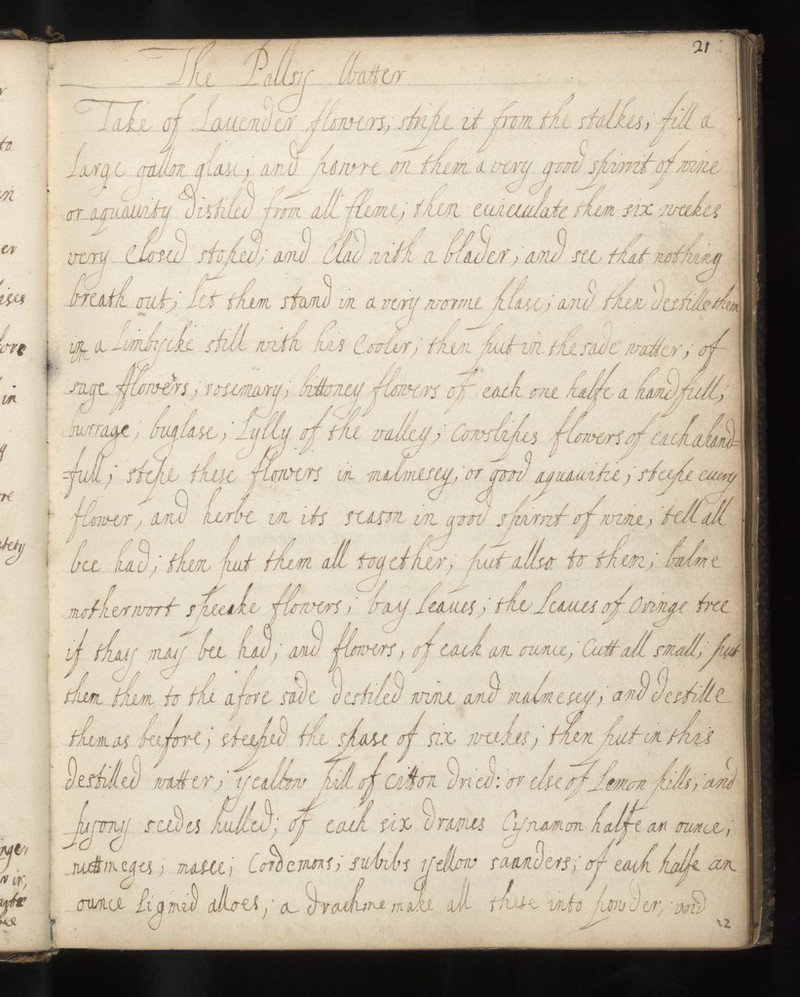 21
The Pallsy Watter
Take of Lauender flowers, stripe it from the stalkes, fill a
Large gallon glase; and powre on them a very good spirrit of wine
or aquauity Distiled from all fleme; then euirculate them six weekes
very Closed stoped; and Clad with a blader; and see that nothing
breath out; Let them stand in a very worme plase; and then destille them
in a Limbycke still with his Cooler; then put in the sade watter; of
sage fflowers; rosemary; bittoney flowers of each one halfe a handfull;
burrage; buglase; Lylly of the valley; Cowslipes flowers of each a hand=
=full; stepe these flowers in malmesey; or good aquauitie; steepe euery
flower, and herbe in its season in good spirrit of wine, tell all
bee had; then put them all together; put allso to them; balme
motherwort speeake flowers; bay Leaues; the Leaues of Oringe tree
if thay may bee had; and flowers, of each an ounce; Cutt all small; put
then them to the afore sade destiled wine and malmesey; and destille
them as beefore; steeped the spase of six weekes; then put in this
destilled watter; yeallow pill of Citton Dried: or else of Lemon pills; and
pyony seedes hulled; of each six drames Cynamon halfe an ounce;
nuttmeges; masee; Cordemons; subibs yellow saanders; of each halfe an
ounce Lignid alloes; a drachme make all these into powder, and
12
to
in
er
ises
in
re